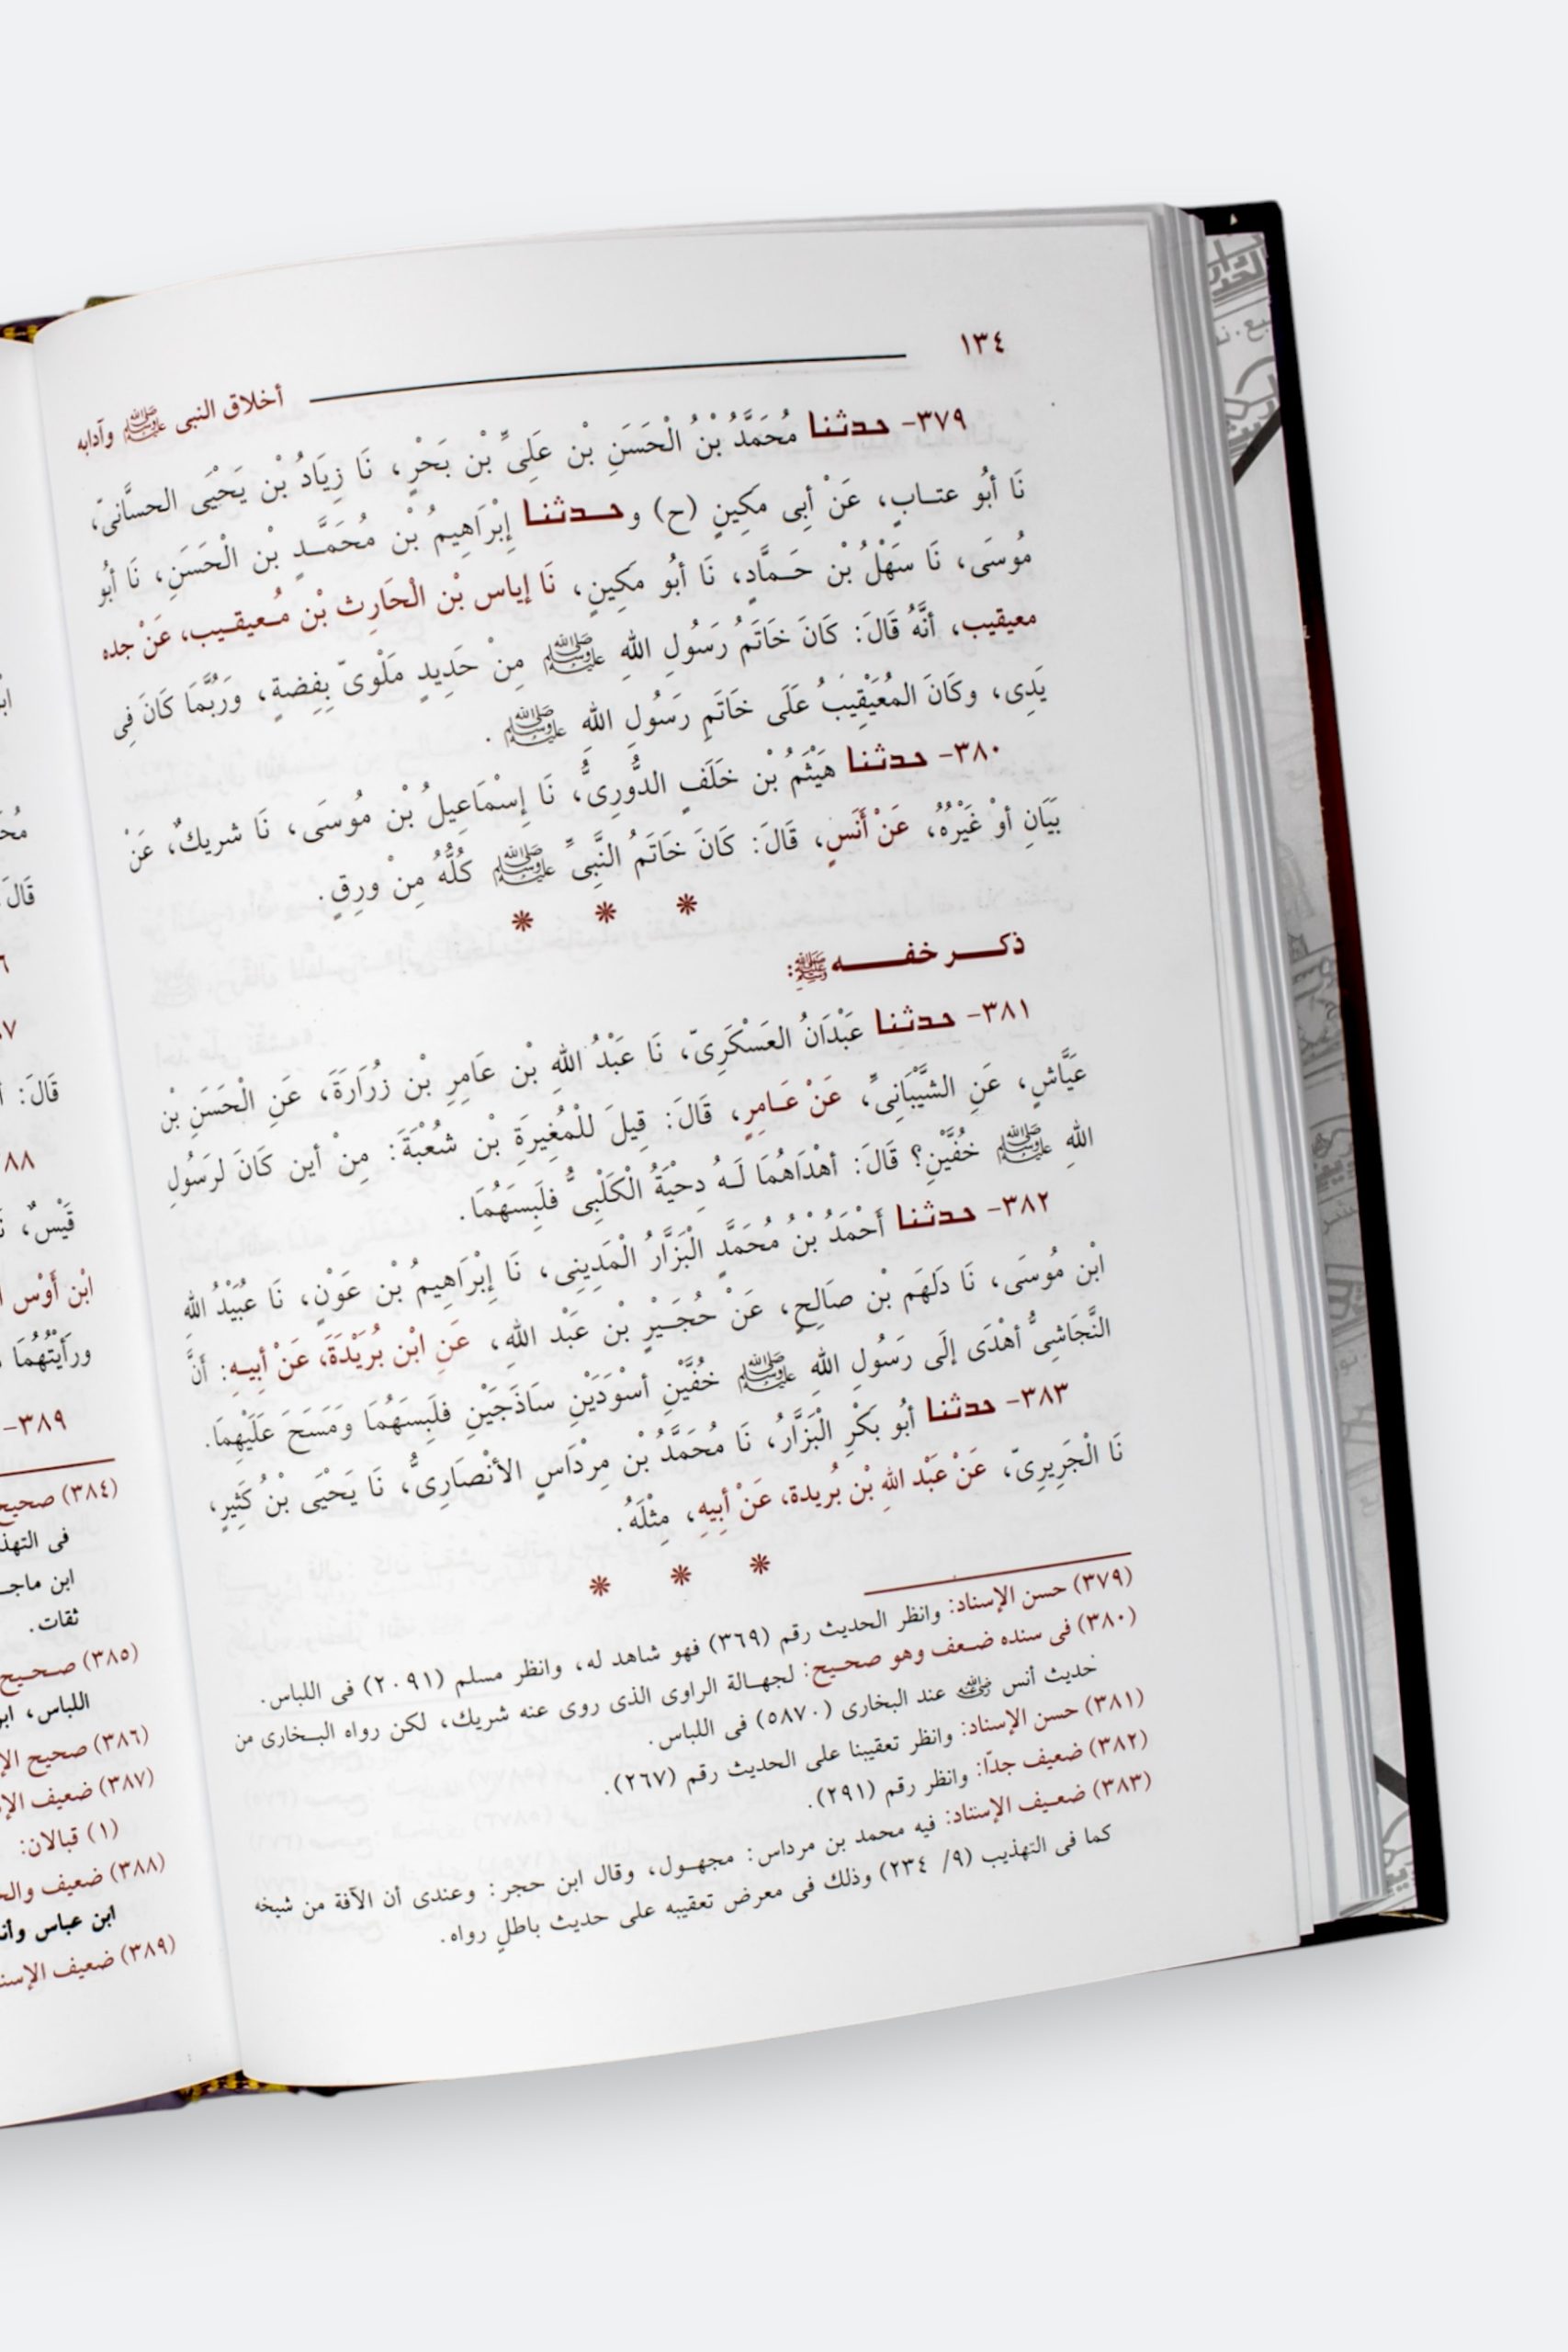 ١٣٤
أخلاق النبى ﷺ وآدابه
٣٧٩- حدثنا مُحَمَّدُ بْنُ الْحَسَنِ بْن عَلِىِّ بْن بَحْرٍ، نَا زِيَادُ بْن يَحْيَى الحسَّانىّ،
نَا أبُو عتـابٍ، عَنْ أبِى مَكِينٍ (ح) وحـدثنـا إِبْرَاهِيمُ بْن مُحَمَّـدٍ بْن الْحَسَنِ، نَا أبُو
مُوسَى، نَا سَهْلُ بْن حَـمَّادٍ، نَا أبُو مَكِينٍ، نَا إياس بْن الْحَارِث بْن مُـعيقـيب، عَنْ جده
معيقيب، أنَّهُ قَالَ: كَانَ خَاتَمُ رَسُولِ اللهِ ﷺ مِنْ حَدِيدٍ مَلْوىّ بِفِضةٍ، وَرُبَّمَا كَانَ فِى
يَدِى، وكَانَ المُعَيْقِيبُ عَلَى خَاتَمِ رَسُولِ اللهِ ﷺ .
٣٨٠- حدثنا هَيْثَمُ بْن خَلَفٍ الدُّورِىُّ، نَا إسْمَاعِيلُ بْن مُوسَى، نَا شريكٌ، عَنْ
بَيَانِ أوْ غَيْرُهُ، عَنْ أنَسٍ، قَالَ: كَانَ خَاتَمُ النَّبِىِّ ﷺ كُلُّهُ مِنْ ورِقٍ.
* * *
ذكــر خفــــه ﷺ:
٣٨١- حدثنا عَبْدَانُ العَسْكَرِىّ، نَا عَبْدُ اللهِ بْن عَامِرِ بْن زُرَارَةَ، عَنِ الْحَسَنِ بْن
عَيَّاشٍ، عَنِ الشَّيْبَانِىِّ، عَنْ عَـامِرٍ، قَالَ: قِيلَ للْمُغِيرَةِ بْن شُعْبَةَ: مِنْ أين كَانَ لرَسُولِ
اللهِ ﷺ خُفَّيْنِ؟ قَالَ: أهْدَاهُمَا لَـهُ دِحْيَةُ الْكَلْبِىُّ فلَبِسَهُمَا.
٣٨٢- حدثنا أَحْمَدُ بْنُ مُحَمَّدٍ الْبَزَّارُ الْمَدِينِى، نَا إبْرَاهِيمُ بْن عَوْنٍ، نَا عُبَيْدُ اللهِ
ابْن مُوسَى، نَا دَلَهَم بْن صَالِحٍ، عَنْ حُجَـيْرٍ بْن عَبْد اللهِ، عَنِ ابْن بُرَيْدَةَ، عَنْ أبِيـهِ: أنَّ
النَّجَاشِىُّ أهْدَى إلَى رَسُولِ اللهِ ﷺ خُفَّيْنِ أسْوَدَيْنِ سَاذَجَيْنِ فلَبِسَهُمَا وَمَسَحَ عَلَيْهِمَا.
٣٨٣- حدثنا أبُو بَكْرٍ الْبَزَّارُ، نَا مُحَمَّدُ بْن مِرْدَاسٍ الأنْصَارِىُّ، نَا يَحْيَى بْنُ كَثِيرٍ،
نَا الْجَرِيرِىّ، عَنْ عَبْد اللهِ بْن بُريدة، عَنْ أبِيهِ، مِثْلَهُ.
* * *
(٣٧٩) حسن الإسناد: وانظر الحديث رقم (٣٦٩) فهو شاهد له، وانظر مسلم (٢٠٩١) فى اللباس.
(٣٨٠) فى سنده ضـعف وهو صحـيح: لجهـالة الراوى الذى روى عنه شريك، لكن رواه البـخارى من
حديث أنس رضي الله عنه عند البخارى (٥٨٧٠) فى اللباس.
(٣٨١) حسن الإسناد: وانظر تعقيبنا على الحديث رقم (٢٦٧).
(٣٨٢) ضعيف جدّا: وانظر رقم (٢٩١).
(٣٨٣) ضعـيف الإسناد: فيه محمد بن مرداس: مجهـول، وقال ابن حجر: وعندى أن الآفة من شيخه
كما فى التهذيب (٩/ ٢٣٤) وذلك فى معرض تعقيبه على حديث باطلٍ رواه.
قَالَ:
قَيْسٌ،
ابْن أَوْس
ورَأيْتُهُمَا
٣٨٩-
(٣٨٤) صحيح
فى
ثقات.
(٣٨٥) صـحـيح
اللباس،
(٣٨٦) صحيح
(٣٨٧) ضعيف
(١) قبالان:
(٣٨٨) ضعيف
ابن عباس
(٣٨٩) ضعيف